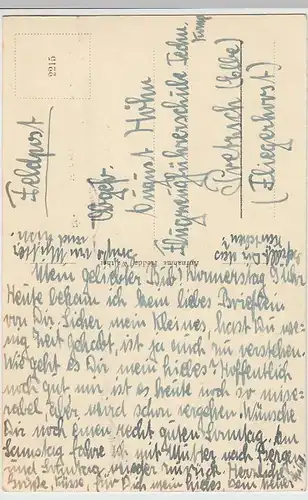 Feldpost
2215
Obgefr.
August Höhn
Flugzeugführerschule Techn. Komp
Pretzsch (Elbe)
(Fliegerhorst)
Mein geliebter Bub! Donnerstag 9 Uhr
Heute bekam ich kein liebes Brieflein
von Dir. Sicher mein Kleines, hast Du we-
nig Zeit gehabt, ist ja auch zu verstehen
Wie geht es Dir mein liebes? Hoffentlich
noch gut mir ist es heute noch so mise-
rabel aber wird schon vergehen. Wünsche
Dir noch einen recht guten Sonntag. Am
Samstag fahre ich mit Mutter nach Berge
und Sonntag wieder zurück. Herzliche
Grüße, Küsse, für Dich mein liebes, dein